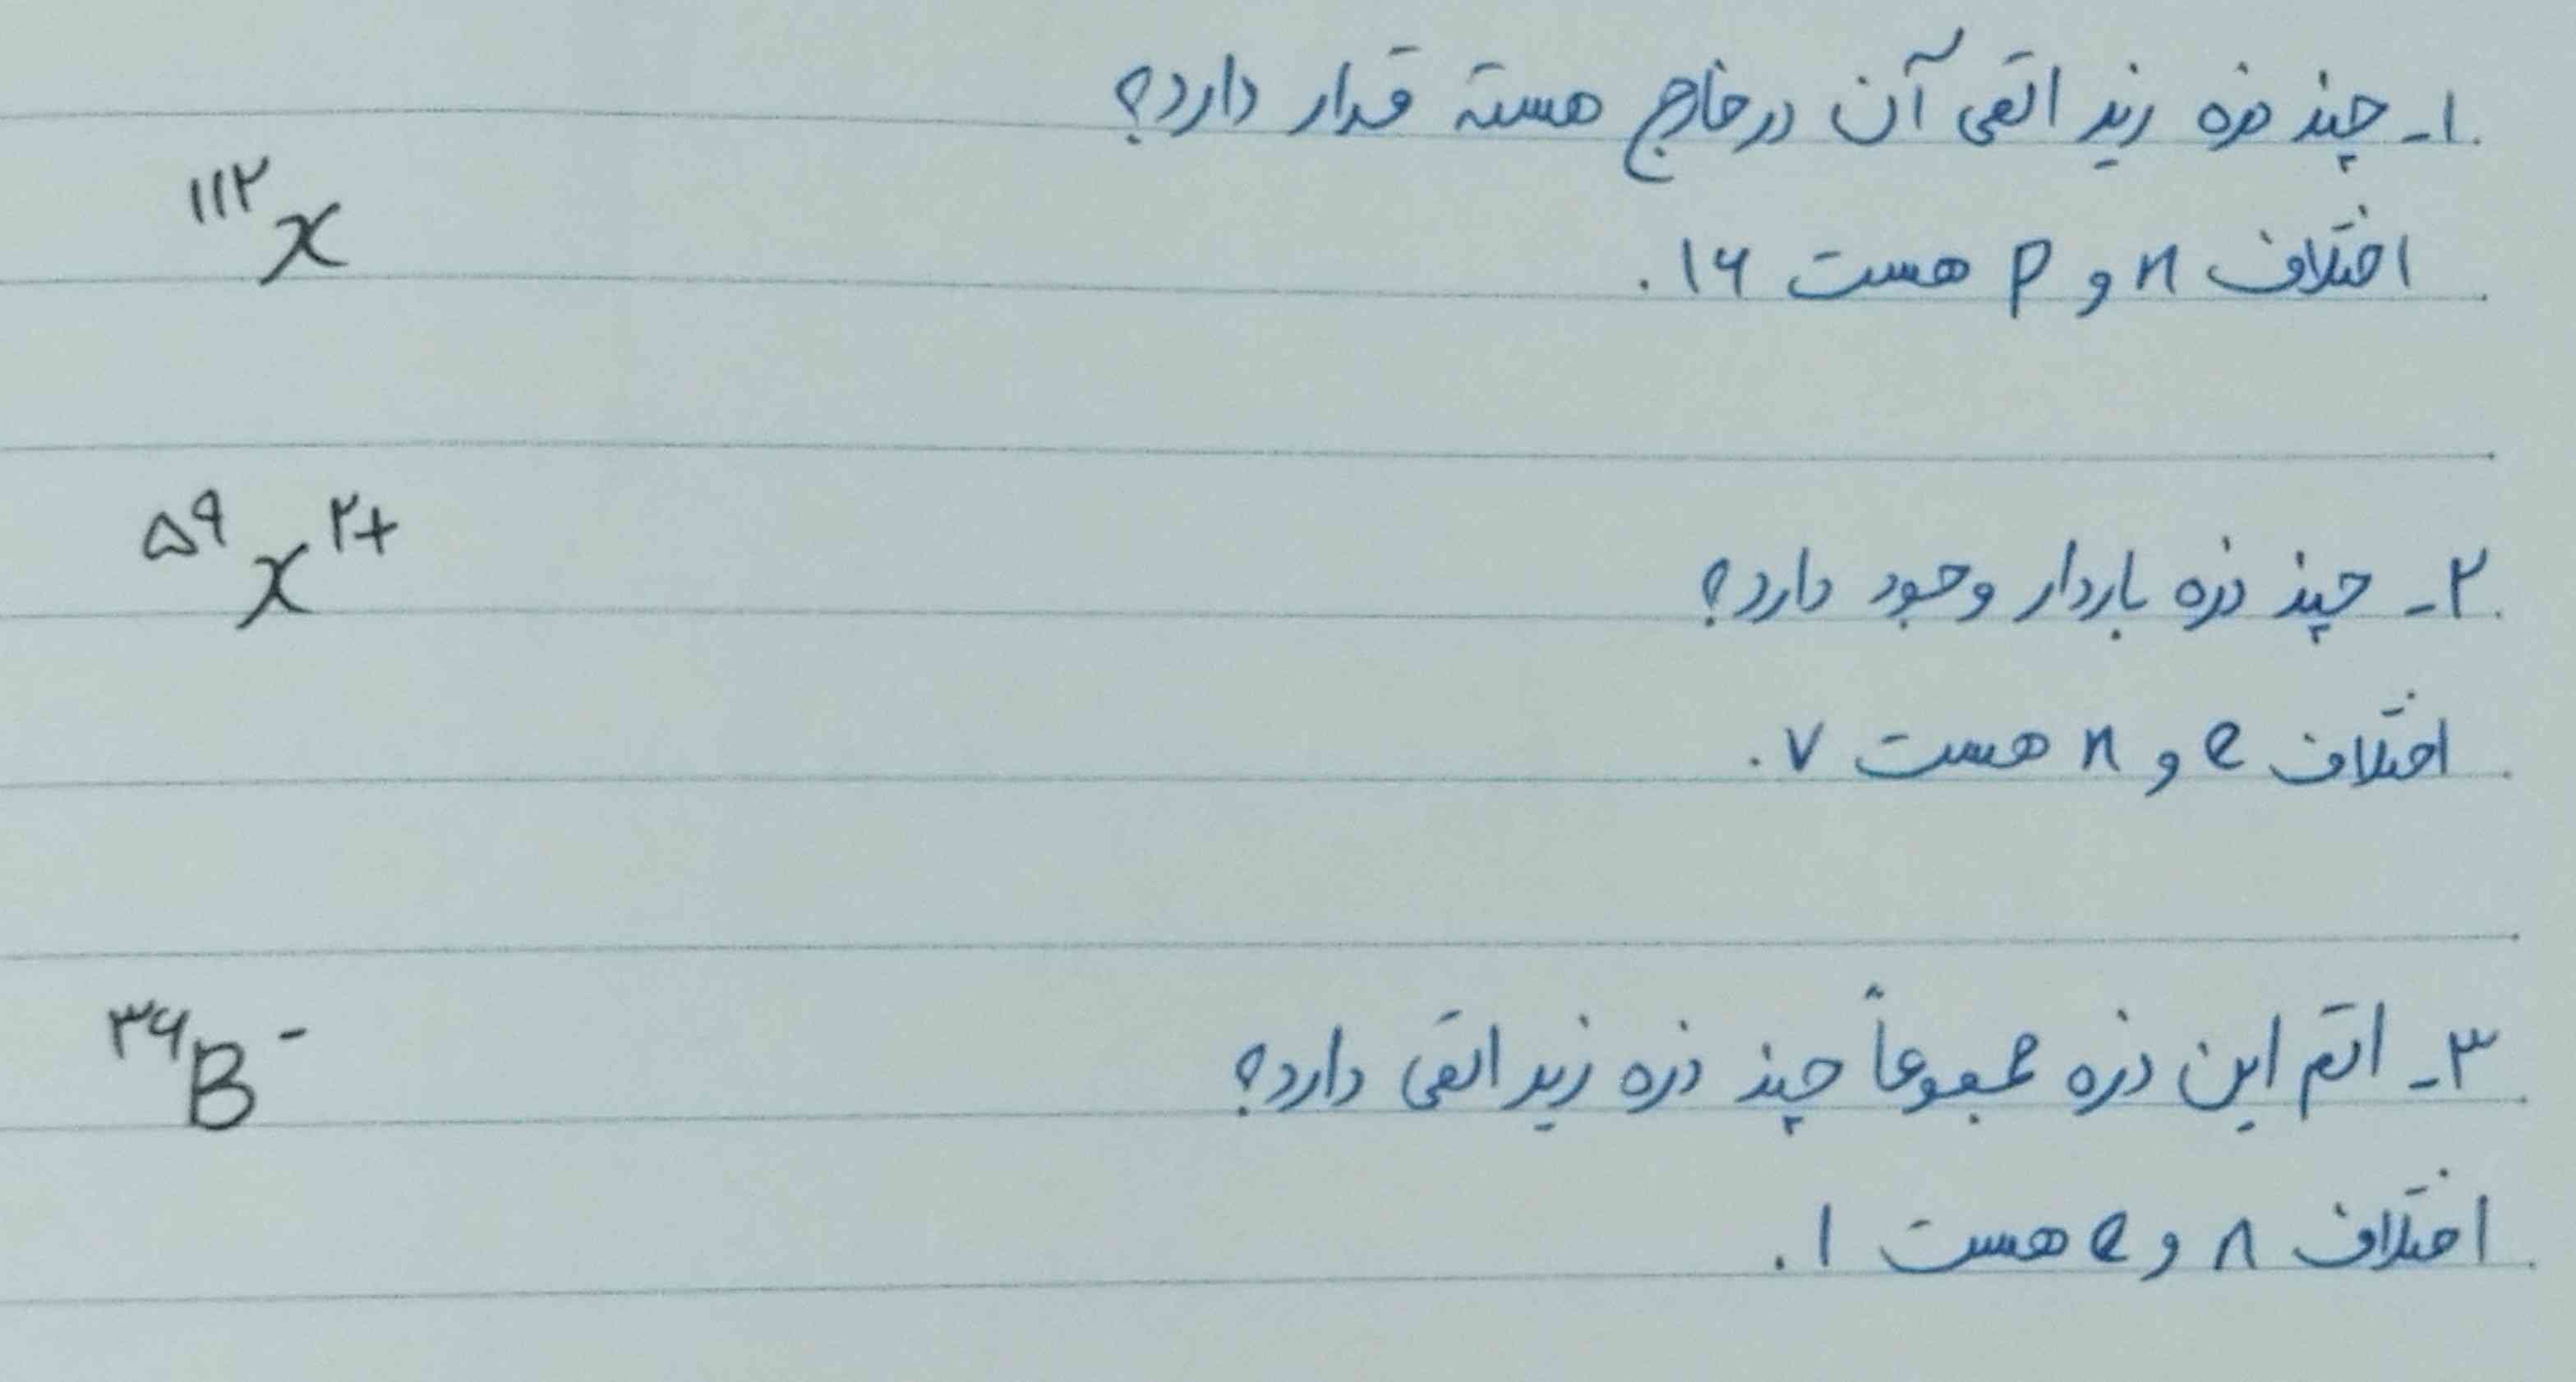 ۱- چند ذره زیر اتمی آن در خارج هسته قرار دارد؟
۱۱۲X
اختلاف n و p هست ۱۶.
۵۹X۲+
۲- چند ذره باردار وجود دارد؟
اختلاف e و n هست ۷.
۳۶B-
۳- اتم این ذره مجموعاً چند ذره زیر اتمی دارد؟
اختلاف n و e هست ۱.